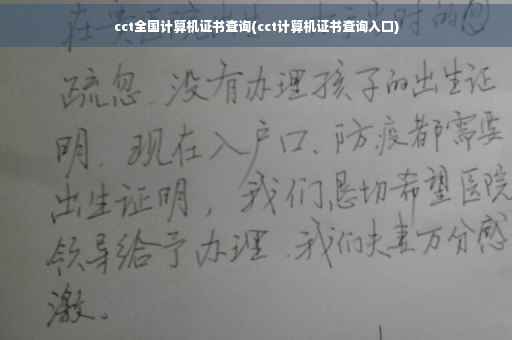 cct全国计算机证书查询(cct计算机证书查询入口)
疏忽、没有办理孩子的出生证
明.现在入户口、防疫都需要
出生证明，我们恳切希望医院
领导给予办理.我们夫妻万分感
激。